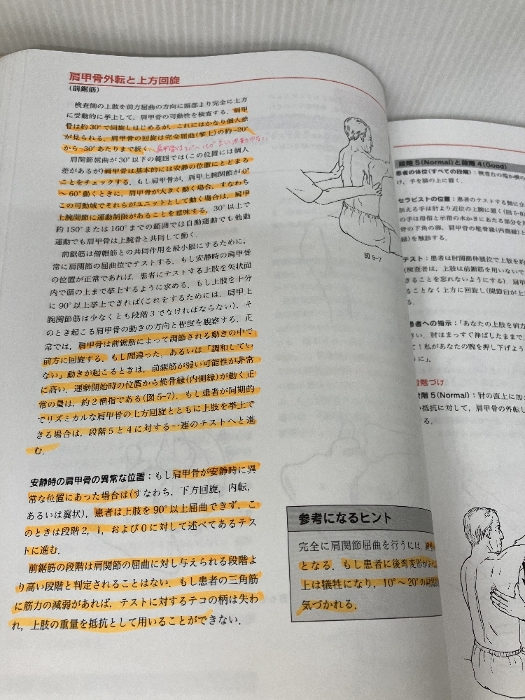 肩甲骨外転と上方回旋
(前鋸筋)
検査側の上肢を前方屈曲の方向に頭部より完全に上方
に受動的に挙上して，肩甲骨の可動性を検査する．肩甲
骨は約30°で回旋しはじめるが，これにはかなり個人差
が見られる．肩甲骨の回旋は完全屈曲(掌上)の約-20°
から-30°あたりまで続く．
肩関節屈曲が30°以下の範囲では(この位置には個人
差があるが)肩甲骨は基本的には安静の位置にとどまる
ことをチェックする．もし肩甲骨が，肩甲上腕関節が0°
～60°動くときに，肩甲骨が大きく動く場合，すなわち
この可動域でそれらがユニットとして動く場合は，肩甲
上腕関節に運動制限があることを意味する．30°以上で
約150°または160°までの範囲では自動運動でも他動
運動でも肩甲骨は上腕骨と共同して動く．
前鋸筋は僧帽筋との共同作用を最小限にするために，
常に肩関節の屈曲位でテストする．もし安静時の肩甲骨
の位置が正常であれば，患者にテストする上肢を矢状面
内で頭の上まで挙上するように求める．もし上肢を十分
に90°以上挙上できれば(これをするためには，肩甲上
腕関節筋は少なくとも段階3でなければならない)，そ
のとき起こる肩甲骨の動きの方向と程度を観察する．正
常では，肩甲骨は前鋸筋によって調節される動きの中で，
前方に回旋する．もし間違った，あるいは「調和してい
ない」動きが起こるときは，前鋸筋が弱い可能性が非常
に高い．運動開始時の位置から椎骨縁(内側縁)が動く正
常の量は，約2横指である(図5-7)．もし患者が同期的
でリズミカルな肩甲骨の上方回旋とともに上肢を挙上で
きる場合は，段階5と4に対する一連のテストへと進
む．
安静時の肩甲骨の異常な位置：もし肩甲骨が安静時に異
常な位置にあった場合は(すなわち，下方回旋，内転，
あるいは翼状)，患者は上肢を90°以上屈曲できず，こ
のときは段階2，1，および0に対して述べてあるテス
トに進む．
前鋸筋の段階は肩関節の屈曲に対し与えられる段階よ
り高い段階と判定されることはない．もし患者の三角筋
に筋力の減弱があれば，テストに対するテコの柄は失わ
れ，上肢の重量を抵抗として用いることができない．
図5-7
参考になるヒント
完全に肩関節屈曲を行うには，
となる．もし患者に後弯変形が
上は犠牲になり，10°～20°の
気づかれる．
段階5(Normal)と段階4(Good)
患者の体位(すべての段階)：検査台の端か
け，手を膝の上に置く．
セラピストの位置：患者のテストする側に立
与える手は肘より近位の上腕に置く(図5-
の手は母指と示指の水かきにあたる部分を
骨の下角の側，肩甲骨の椎骨縁(内側縁)と
縁)を触診する．
テスト：患者は肘関節伸展位で上肢を約
(検査者は，上肢は前鋸筋を用いないで
きることを思いないように)．肩甲
ことなく上方に回旋し
患者への指示：「あなたの上肢を前方
い．肘はまっすぐ伸ばしたままで
て！私があなたの腕を押し下げよう
に」．
段階づけ
段階5(Normal)：肘の直上に
抵抗に対して，肩甲骨の外転し
る．